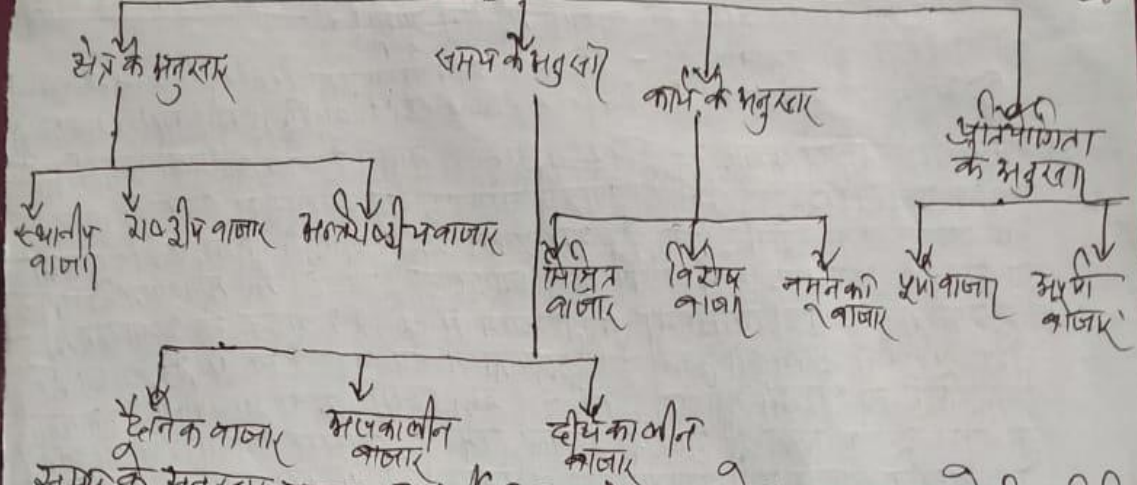 क्षेत्र के अनुसार
समय के अनुसार
कार्य के अनुसार
प्रतियोगिता
के अनुसार
स्थानीय
बाजार
राष्ट्रीय बाजार
अन्तर्राष्ट्रीय बाजार
मिश्रित
बाजार
विशेष
बाजार
नमूने की
बाजार
पूर्ण बाजार
अपूर्ण
बाजार
दैनिक बाजार
अल्पकालीन
बाजार
दीर्घकालीन
बाजार
समय के अनुसार